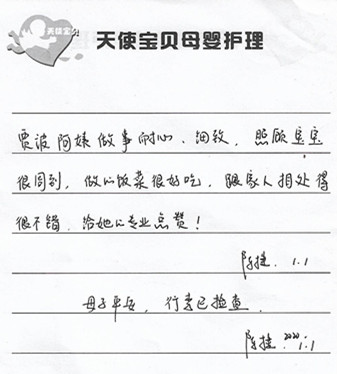 天使宝贝
天使宝贝母婴护理
贾波阿姨做事耐心、细致,照顾宝宝
很周到,做的饭菜很好吃,跟家人相处得
很不错,给她的专业点赞!
陈 1.1
母子平安,行李已检查.
陈 2020.1.1